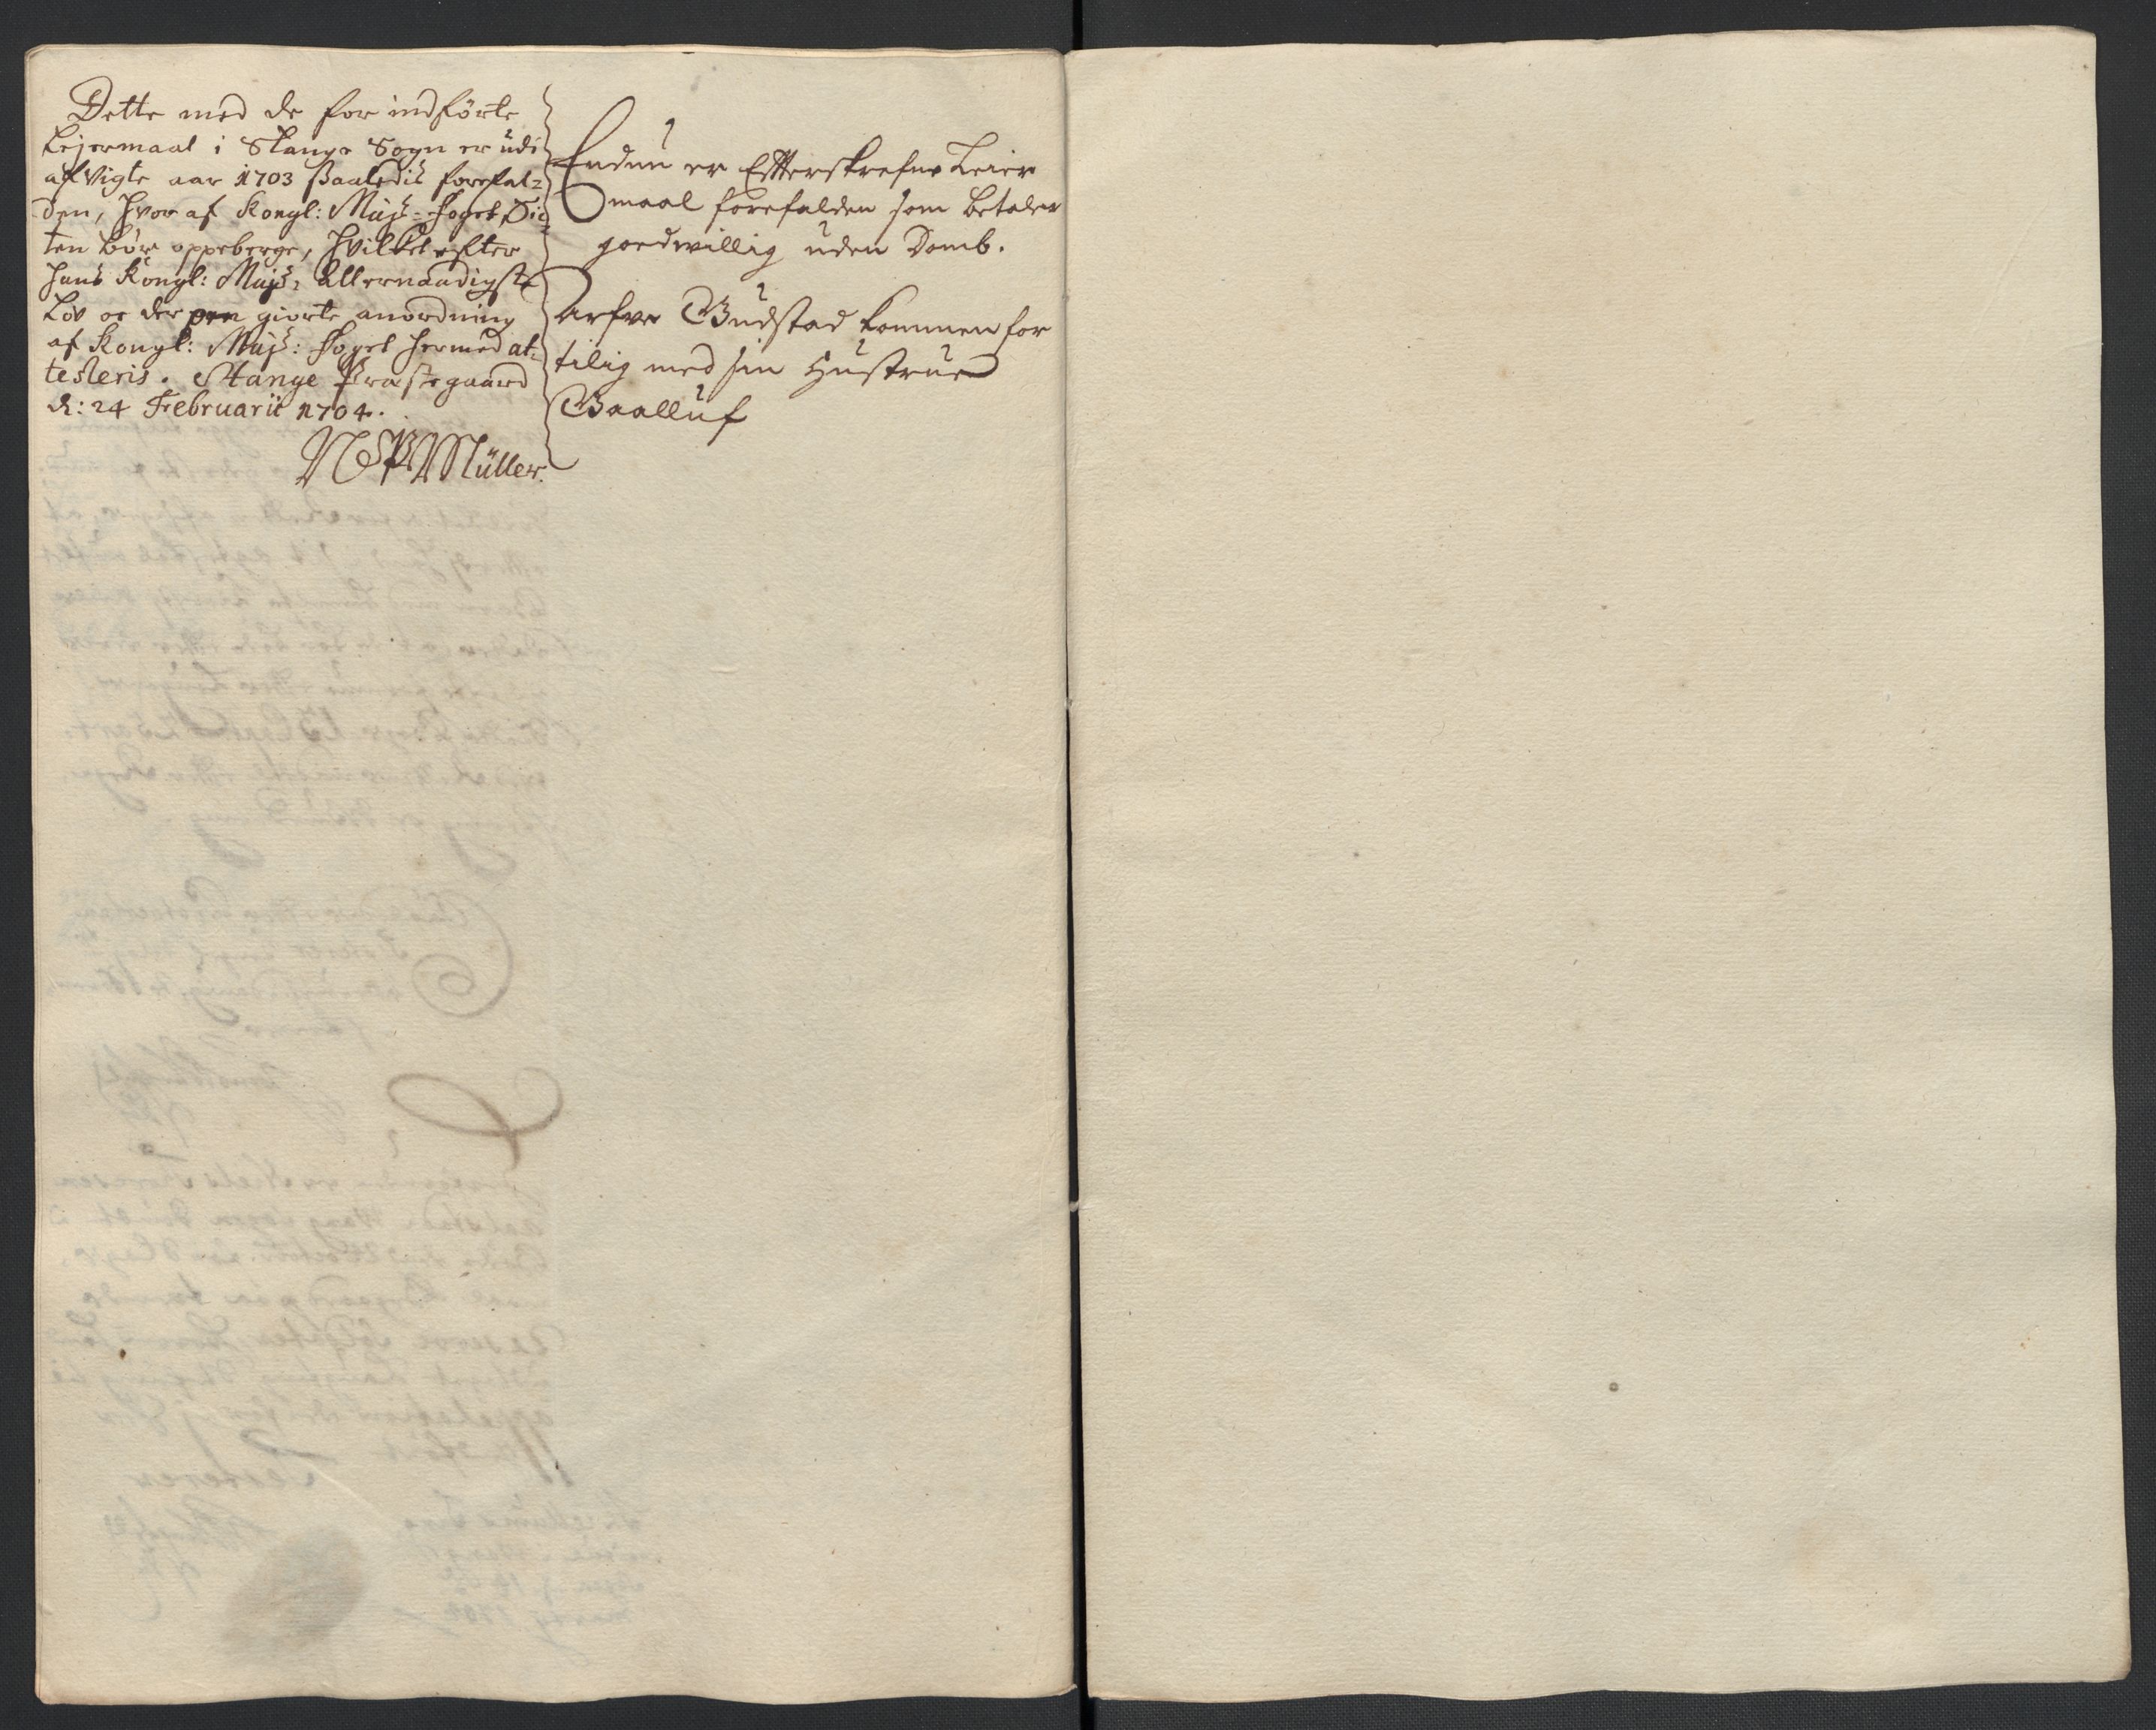 Dette med de for indførte
Lejermaal i Stange Sogn er udi
afvigte aar 1703 saaledis forefal=
den, hvor af Kongl: Majs: Foget Sig
ten bør oppeberge, hvilket efter
hans Kongl: Majs: Allernaadigste
Lov oc der paa giorte anordning
af Kongl: Majs: Foget hermed at=
testeris. Stange Præstegaard
d: 24 Februarii 1704.
Müller.
Endnu er Efterskrefne Leier
maal forefalden som betaler
goedwillig uden Domb.
Arfve Gudstad kommen for
tilig med sin Hustrue
Gaalluf